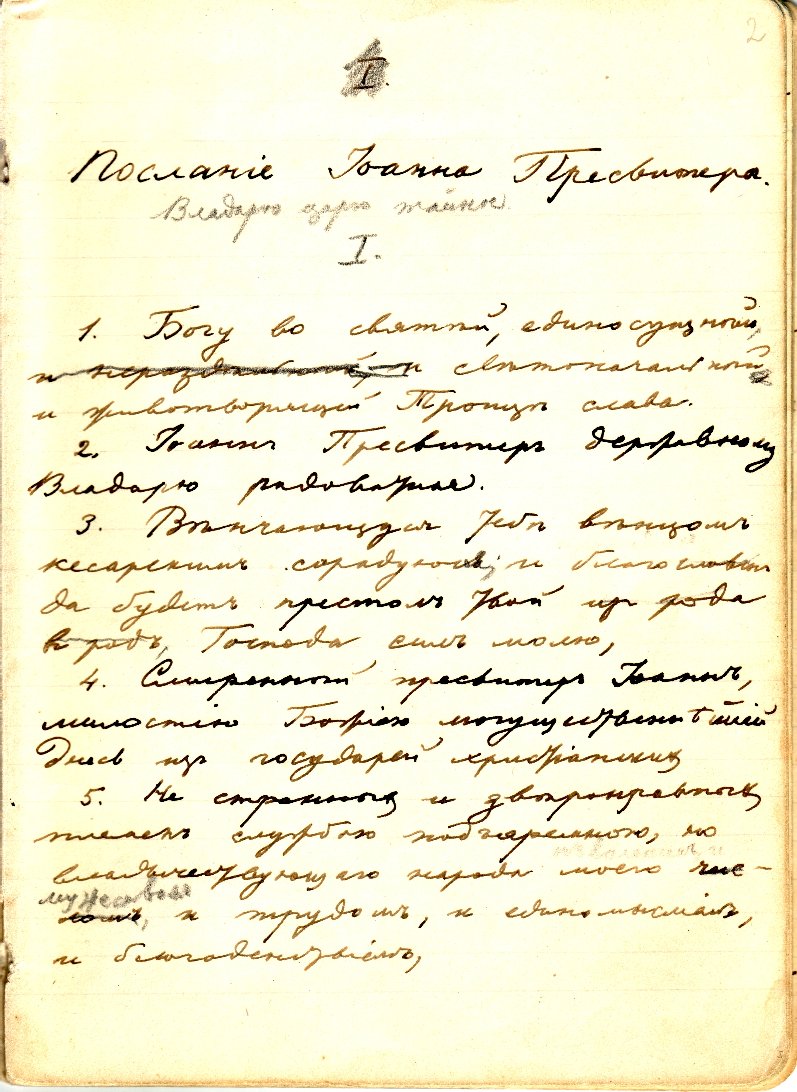 2
I.
Посланіе Іоанна Пресвитера.
Владарю царю тайны
I.
1. Богу во святѣй, единосущной,
и нераздѣльной, и свѣтоначальной
и животворящей Троицѣ слава.
2. Іоаннъ Пресвитеръ державному
Владарю радоватися.
3. Вѣнчающуся Тебѣ вѣнцомъ
кесарскимъ сорадуюсь; и благословенъ
да будетъ престолъ Твой изъ рода
въ родъ, Господа силъ молю,
4. Смиренный пресвитеръ Іоаннъ,
милостію Божіею могущественнѣйшій
днесь изъ государей христіанскихъ
5. Не странныхъ и звѣронравныхъ
племенъ службою подъяремною, но
владычествующаго народа моего чис-
мужествомъ
ломъ, и трудомъ, и единомысліемъ,
и благоденствіемъ,